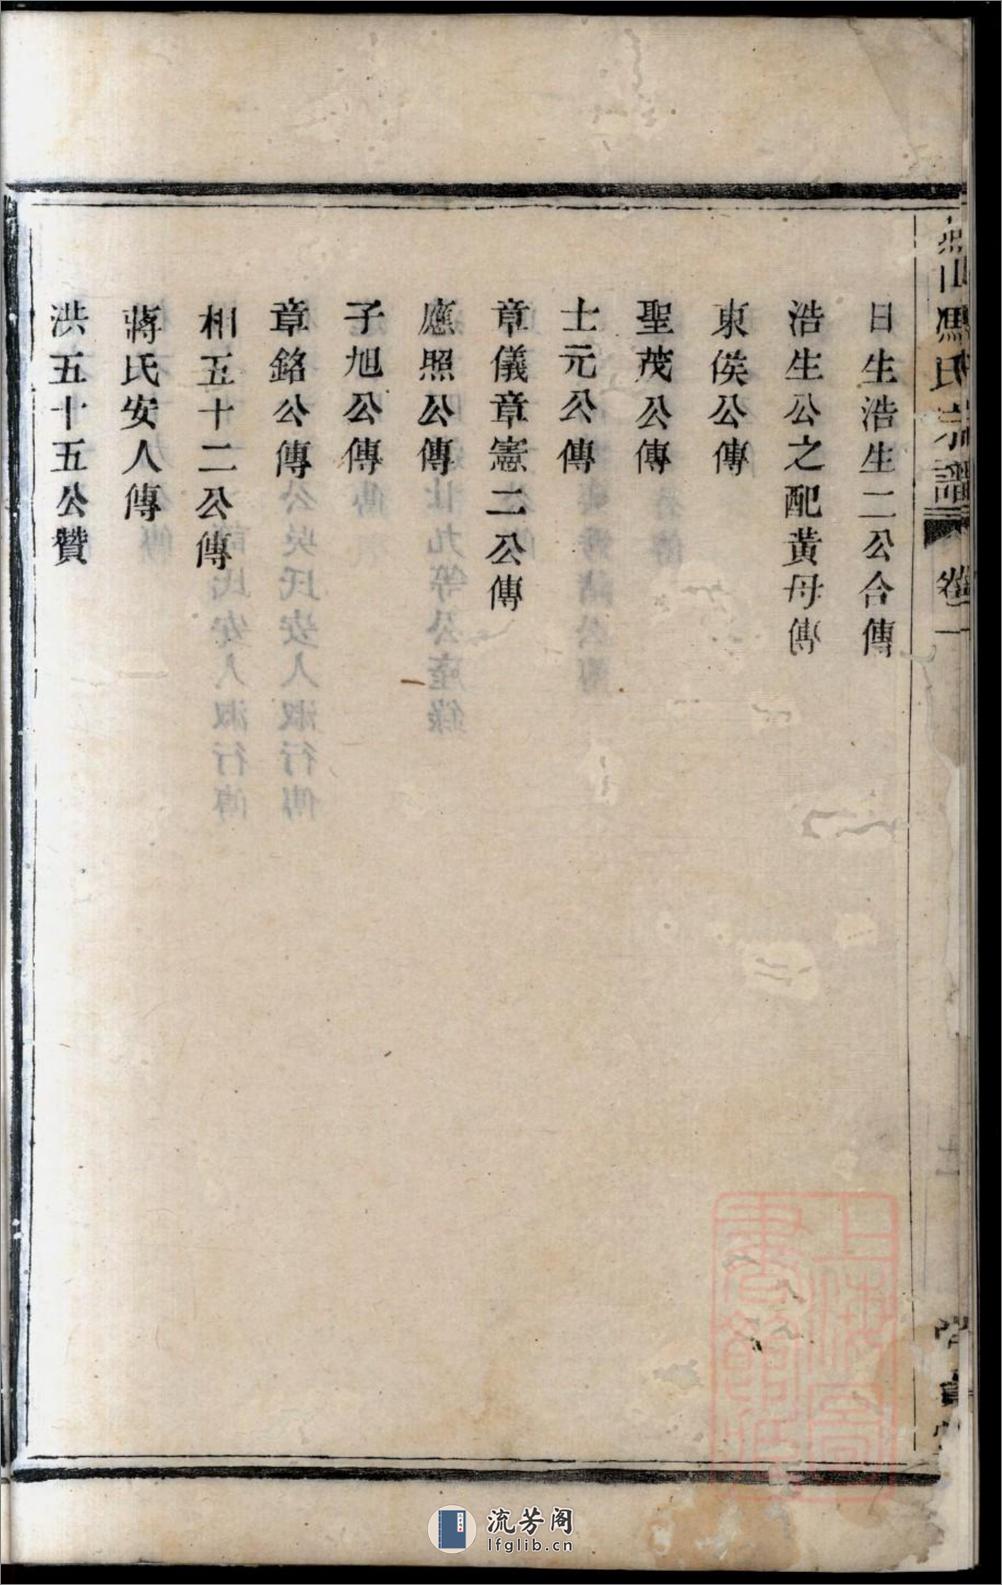 日生浩生二公合傳
浩生公之配黃母傳
東侯公傳
聖茂公傳
士元公傳
章儀章憲二公傳
應照公傳
子旭公傳
章銘公傳
相五十二公傳
蔣氏安人傳
洪五十五公贊
山馮氏宗譜
卷一
上海圖書館藏
流芳阁
lfglib.cn